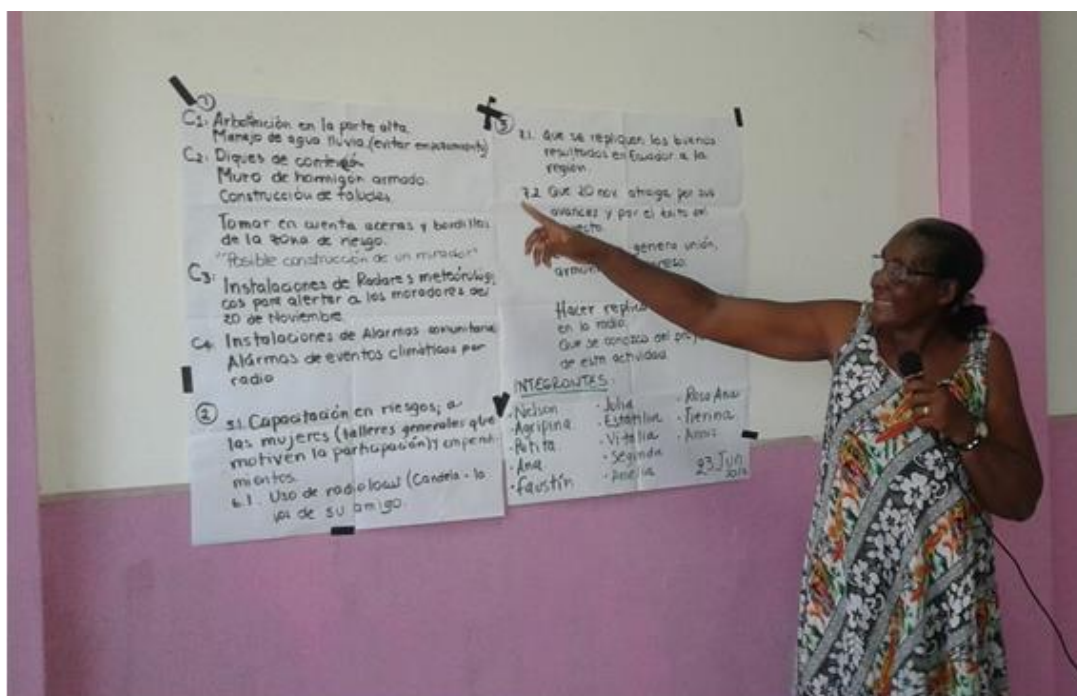 ①
C1: Arborización en la parte alta
Manejo de agua lluvia (evitar
C2: Diques de contención
Muro de hormigón armado.
Construcción de taludes
Tomar en cuenta aceras y bordillos
de la zona de riesgo.
"Posible construcción de un mirador"
C3: Instalaciones de Radares meteorológi
cos para alertar a los moradores del
20 de Noviembre
C4 Instalaciones de Alarmas comunitaria
Alármas de eventos climáticos por
radio
②
5.1 Capacitación en riesgos, a
las mujeres (talleres generales que
motiven la participación)
mientos.
6.1. Uso de radio local (Candela - la
voz de su amigo.
③
7.1. Que se repliquen los buenos
resultados en Ecuador a la
región.
7.2 Que 20 nov atraiga por sus
avances y por el éxito del
ecto.
genera unión,
armon reso.
Hacer replic
en la radio.
Que se conozca del proy
de esta actividad
INTEGRANTES:
• Nelson
• Agripina
• Petita
• Ana
• Faustín
• Julia
• Vitalia
• Segunda
• Rosa Ana
23 Jun